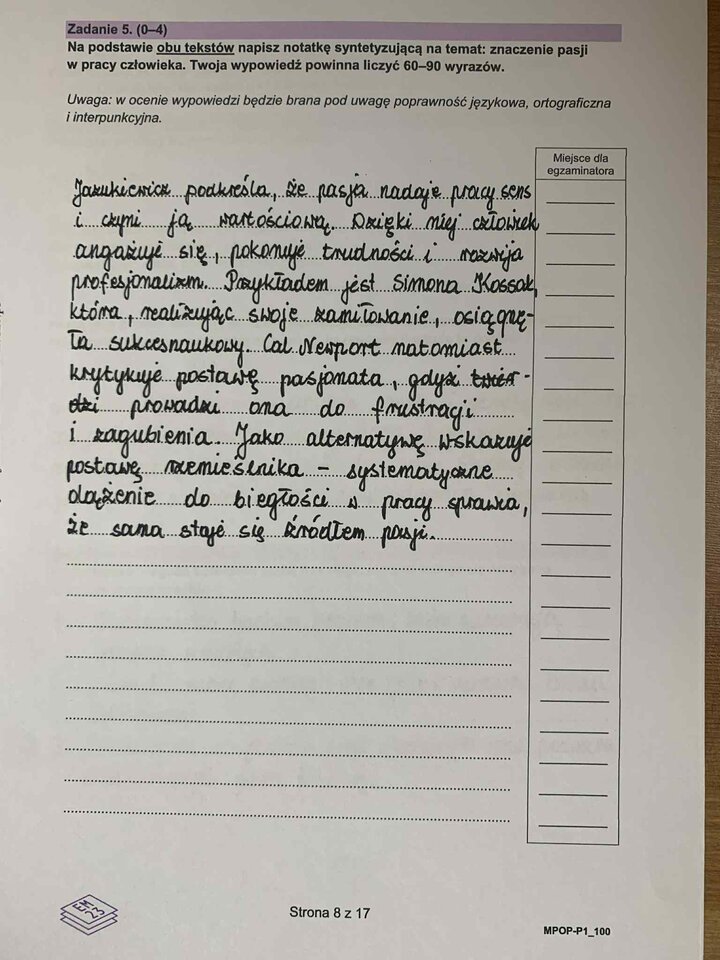 Zadanie 5. (0–4)
Na podstawie obu tekstów napisz notatkę syntetyzującą na temat: znaczenie pasji
w pracy człowieka. Twoja wypowiedź powinna liczyć 60–90 wyrazów.
Uwaga: w ocenie wypowiedzi będzie brana pod uwagę poprawność językowa, ortograficzna
i interpunkcyjna.
Miejsce dla
egzaminatora
Jazukiewicz podkreśla, że pasja nadaje pracy sens
i czyni ją wartościową. Dzięki niej człowiek
angażuje się, pokonuje trudności i rozwija
profesjonalizm. Przykładem jest Simona Kossak,
która, realizując swoje zamiłowanie, osiągnę-
ła sukces naukowy. Cal Newport natomiast
krytykuje postawę pasjonata, gdyż twier-
dzi prowadzi ona do frustracji
i zagubienia. Jako alternatywę wskazuje
postawę rzemieślnika – systematyczne
dążenie do biegłości w pracy sprawia,
że sama staje się źródłem pasji.
EM
23
Strona 8 z 17
MPOP-P1_100